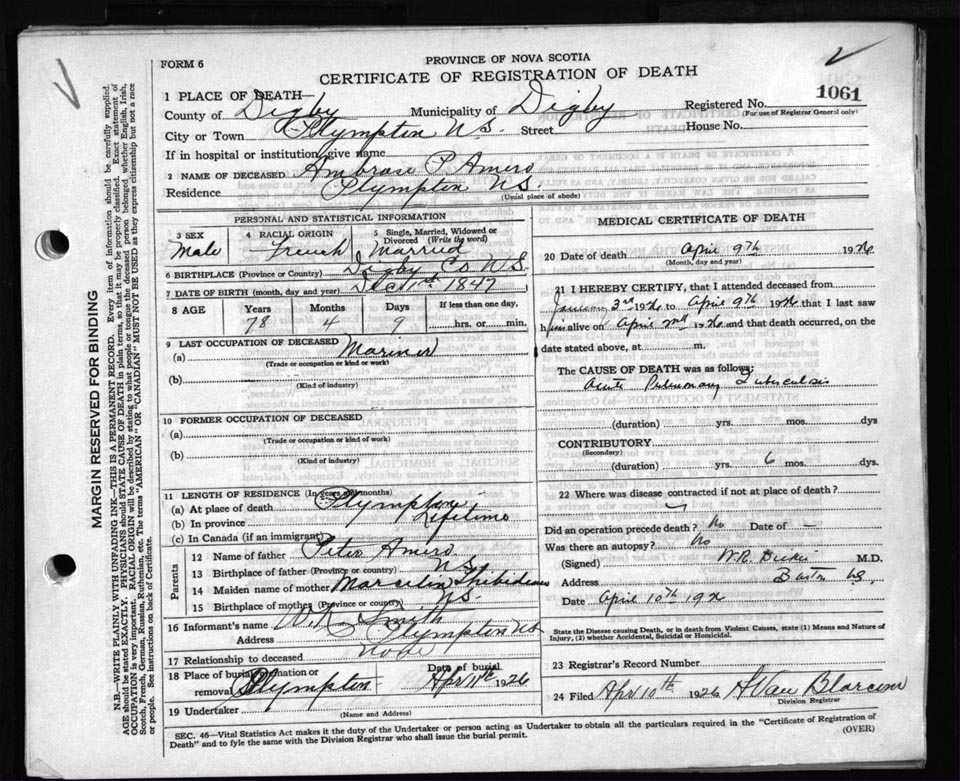 FORM 6
PROVINCE OF NOVA SCOTIA
CERTIFICATE OF REGISTRATION OF DEATH
1061
1 PLACE OF DEATH—
County of Digby Municipality of Digby Registered No.
(For use of Registrar General only)
City or Town Plympton N S. Street House No.
If in hospital or institution, give name
2 NAME OF DECEASED Ambrose P. Amero
Residence Plympton N S.
(Usual place of abode)
PERSONAL AND STATISTICAL INFORMATION
3 SEX 4 RACIAL ORIGIN 5 Single, Married, Widowed or Divorced (Write the word)
Male French Married
6 BIRTHPLACE (Province or Country) Digby Co N S.
7 DATE OF BIRTH (month, day and year) Dec 1st 1847
8 AGE Years Months Days If less than one day,
78 4 9 hrs. or min.
9 LAST OCCUPATION OF DECEASED
(a) Mariner
(Trade or occupation or kind of work)
(b)
(Kind of industry)
10 FORMER OCCUPATION OF DECEASED
(a)
(Trade or occupation or kind of work)
(b)
(Kind of industry)
11 LENGTH OF RESIDENCE (In years and months)
(a) At place of death Plympton
(b) In province Lifetime
(c) In Canada (if an immigrant)
Parents
12 Name of father Peter Amero
13 Birthplace of father (Province or country) N S.
14 Maiden name of mother Marcelin Thibideau
15 Birthplace of mother (Province or country) N S.
16 Informant's name W. K. Smith
Address Plympton N S
17 Relationship to deceased None
18 Place of burial, cremation or removal Plympton Date of burial Apr 11th 1926
19 Undertaker
(Name and Address)
MEDICAL CERTIFICATE OF DEATH
20 Date of death April 9th 1926
(Month, day and year)
21 I HEREBY CERTIFY, that I attended deceased from
January 3rd 1926 to April 9th 1926 that I last saw
him alive on April 2nd 1926 and that death occurred, on the
date stated above, at m.
The CAUSE OF DEATH was as follows:
Acute Pulmonary Tuberculosis
(duration) yrs. mos. dys
CONTRIBUTORY
(Secondary)
(duration) yrs. 6 mos. dys.
22 Where was disease contracted if not at place of death?
Did an operation precede death? No Date of —
Was there an autopsy? No
(Signed) M.D.
Address Barton N S.
Date April 10th 1926
State the Disease causing Death, or in death from Violent Causes, state (1) Means and Nature of
Injury, (2) whether Accidental, Suicidal or Homicidal.
23 Registrar's Record Number
24 Filed Apr 10th 1926 H Van Blarcom
Division Registrar
SEC. 46—Vital Statistics Act makes it the duty of the Undertaker or person acting as Undertaker to obtain all the particulars required in the "Certificate of Registration of
Death" and to fyle the same with the Division Registrar who shall issue the burial permit.
(OVER)
MARGIN RESERVED FOR BINDING
N.B.—WRITE PLAINLY WITH UNFADING INK—THIS IS A PERMANENT RECORD. Every item of information should be carefully supplied.
AGE should be stated EXACTLY. PHYSICIANS should STATE CAUSE OF DEATH in plain terms, so that it may be properly classified. Exact statement of
OCCUPATION is very important. RACIAL ORIGIN will be described by stating to what people or tongue the deceased person belonged, whether English, Irish,
Scotch, French, German, Russian, Ruthenian, etc. The terms "AMERICAN" OR "CANADIAN" MUST NOT BE USED as they express citizenship but not a race
or people. See instructions on back of Certificate.